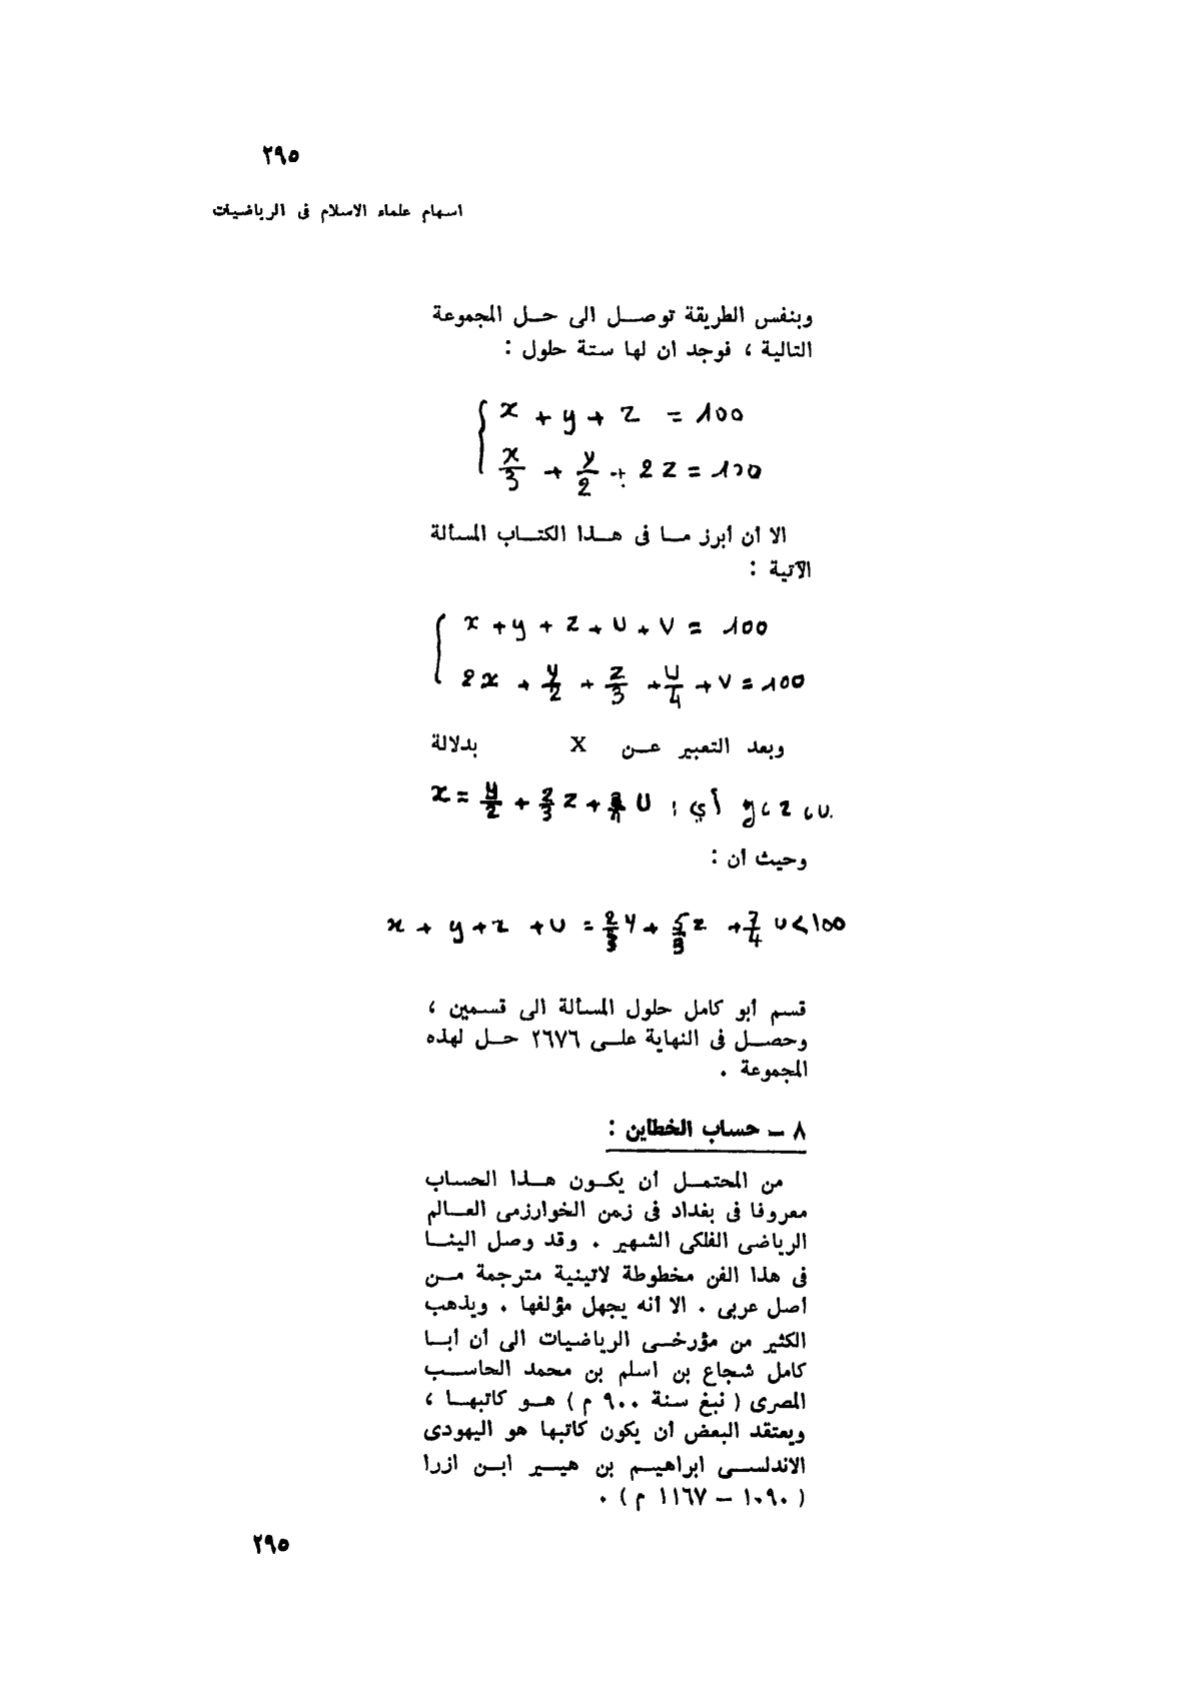 ٢٩٥
اسهام علماء الاسلام فى الرياضيات
وبنفس الطريقة توصل الى حل المجموعة
التالية ، فوجد ان لها ستة حلول :
x + y + z = 100
x/3 + y/2 + 2z = 100
الا أن أبرز ما فى هذا الكتاب المسألة
الآتية :
x + y + z + u + v = 100
2x + y/2 + z/3 + u/4 + v = 100
وبعد التعبير عن X بدلالة
y ، z ، u أي : x = y/2 + 2/3 z + 3/4 u
وحيث ان :
x + y + z + u = 2/3 y + 5/3 z + 7/4 u < 100
قسم أبو كامل حلول المسألة الى قسمين ،
وحصل فى النهاية على ٢٦٧٦ حل لهذه
المجموعة .
٨ – حساب الخطاين :
من المحتمل أن يكون هذا الحساب
معروفا فى بغداد فى زمن الخوارزمى العالم
الرياضى الفلكى الشهير . وقد وصل الينا
فى هذا الفن مخطوطة لاتينية مترجمة من
أصل عربى . الا أنه يجهل مؤلفها . ويذهب
الكثير من مؤرخى الرياضيات الى أن أبا
كامل شجاع بن اسلم بن محمد الحاسب
المصرى ( نبغ سنة ٩٠٠ م ) هو كاتبها ،
ويعتقد البعض أن يكون كاتبها هو اليهودى
الاندلسى ابراهيم بن هيير ابن ازرا
( ١٠٩٠ – ١١٦٧ م ) .
٢٩٥